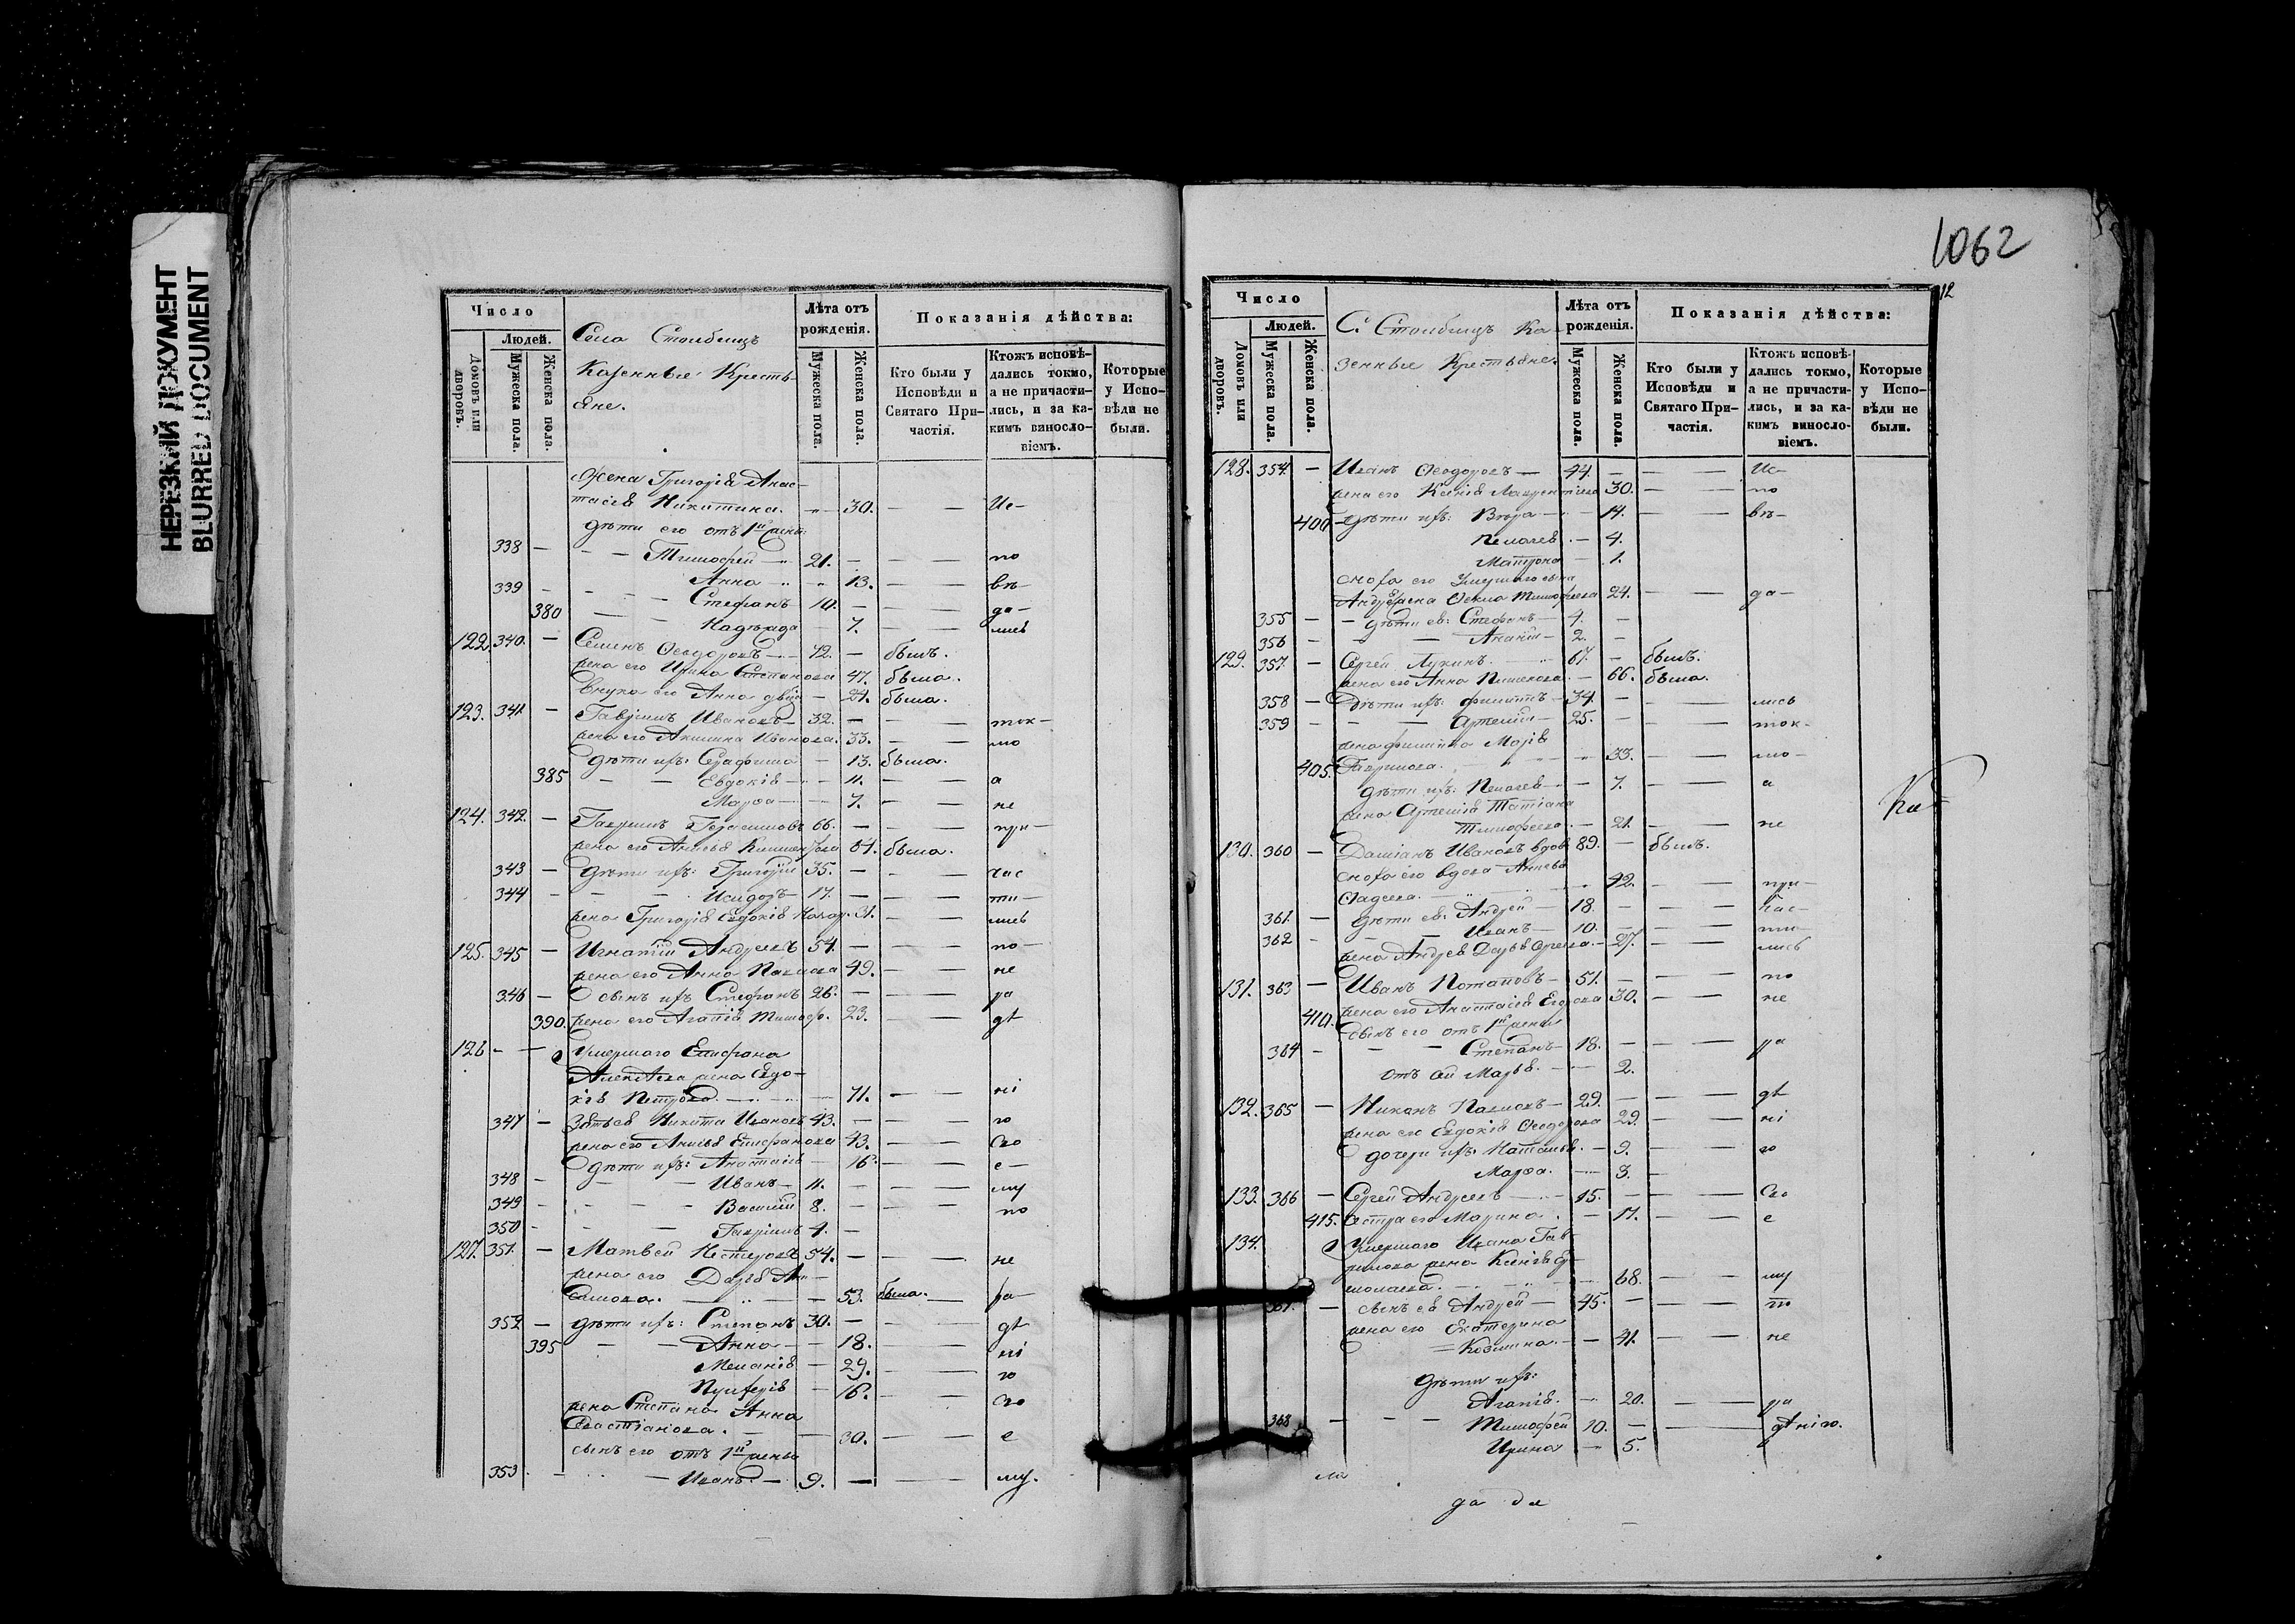 НЕРЕЗКИЙ ДОКУМЕНТ
BLURRED DOCUMENT
Число
Людей.
Домовъ или дворовъ.
Мужеска пола.
Женска пола.
Села Столбищъ
Казенные Кресть-
яне.
Лѣта отъ рожденія.
Мужеска пола.
Женска пола.
Показанія дѣйства:
Кто были у Исповѣди и Святаго При-частія.
Ктожъ исповѣ-дались токмо, а не причасти-лись, и за ка-кимъ винословіемъ.
Которые у Испо-вѣди не были.
Жена Григорія Анас-
тасія Никитина. 30. Ис-
дѣти его отъ 1й жены:
338 — Тимофей 21. — по
Анна 13. — вѣ-
339 — Стефанъ 10. — да-
380 Надежда — 7. — лись
122 340. — Семенъ Ѳеодоровъ 72. — былъ.
жена его Ирина Степанова 47. была.
внука его Анна — 24. была.
123. 341 — Гавріилъ Ивановъ 32. — ток-
жена его Акилина Иванова. 33. — мо
дѣти ихъ: Серафима — 13. была.
385 Евдокія — 11. — а
Марѳа — 7. — не
124. 342. — Гавріилъ Герасимовъ 66. — при-
жена его Анисья 64. была.
343 — дѣти ихъ: Григорій 35. — час
344 — Исидоръ 17. — ти-
жена Григорія Евдокія Назар. 31. — лись
125. 345 — Игнатій Андреевъ 54. — по-
жена его Анна Павлова 49. — не
346 — сынъ ихъ Стефанъ 26. — ра
390. жена его Агапія Тимоф. 23. — дѣ
126 — Умершаго Епифана
жена Евдо-
кія Петрова. 71. — ні
347 — Зятья Никита Ивановъ 43. — ю
жена его Анисья Епифанова 43. — сво
дѣти ихъ: Анастасія — 16. — е-
348 — Иванъ 11. — му
349 — Василій 8. — по
350 — Гавріилъ 4. —
127. 351. — Матвей Нестеровъ 54. — не
жена его Дарья
53. была. — ра-
352 — дѣти ихъ: Степанъ 30. — дѣ
395 Анна — 18. — ні
Меланія — 29. — ю
— 16. — сво
жена Степана Анна
Севастіанова. — 30. — е
сынъ его отъ 1й жены
353. — Иванъ — 9. — му.
1062
12
Число
Людей.
Домовъ или дворовъ.
Мужеска пола.
Женска пола.
С. Столбищъ Ка-
зенные Крестьяне.
Лѣта отъ рожденія.
Мужеска пола.
Женска пола.
Показанія дѣйства:
Кто были у Исповѣди и Святаго При-частія.
Ктожъ исповѣ-дались токмо, а не причасти-лись, и за ка-кимъ винословіемъ.
Которые у Испо-вѣди не были.
128. 354. — Иванъ Ѳеодоровъ — 44. — Ис-
жена его Ксенія Лаврентіева 30. — по
400 дѣти ихъ: Вѣра — 14. — вѣ-
Пелагея — 4.
Матрона — 1.
сноха его умершаго сына
Андрея жена Ѳекла Тимофеева 24. — да-
355 — дѣти ея: Стефанъ — 4. —
356 — Ананій — 2. —
129. 357. — Сергей Лукинъ. 67. — былъ.
жена его Анна — 66. была.
358 — Дѣти ихъ: Филиппъ — 34. — лись
359 — Артемій — 25. — ток-
жена Филиппа Марія
405. Гаврилова. — 33. — мо-
дѣти ихъ: Пелагея — 7. — а
жена Артемія Татіана
Тимофеева. — 21. — не
130. 360 — Даміанъ Ивановъ вдов. 89. — былъ.
сноха его вдова
Фадеева. — 42. — при-
361. — дѣти ея: Андрей — 18. — час-
362 — Иванъ — 10. — ти-
жена Андрея Дарья — 27. — лись
131. 363 — Иванъ Потаповъ — 51. — по
410. жена его Анастасія Егорова 30. — не
сынъ его отъ 1й жены
364 — Степанъ — 18. — ра
отъ Марья. — 2.
132. 365 — Никонъ Павловъ — 29. — дѣ
жена его Евдокія Ѳеодорова 29. — ні
дочери ихъ: Наталья. — 9. — ю
Марѳа. — 3.
133. 366 — Сергей Андреевъ — 15. — сво
415. Сестра его Марина. — 17. — е
134. Умершаго Ивана Гав-
рилова жена Ксенія
68. — му
367. — сынъ ея Андрей — 45. — по
жена его Екатерина
Козмина. — 41. — не
дѣти ихъ:
Агапія. — 20. — ра
368 — Тимофей 10. — дѣнію.
Ирина — 5.